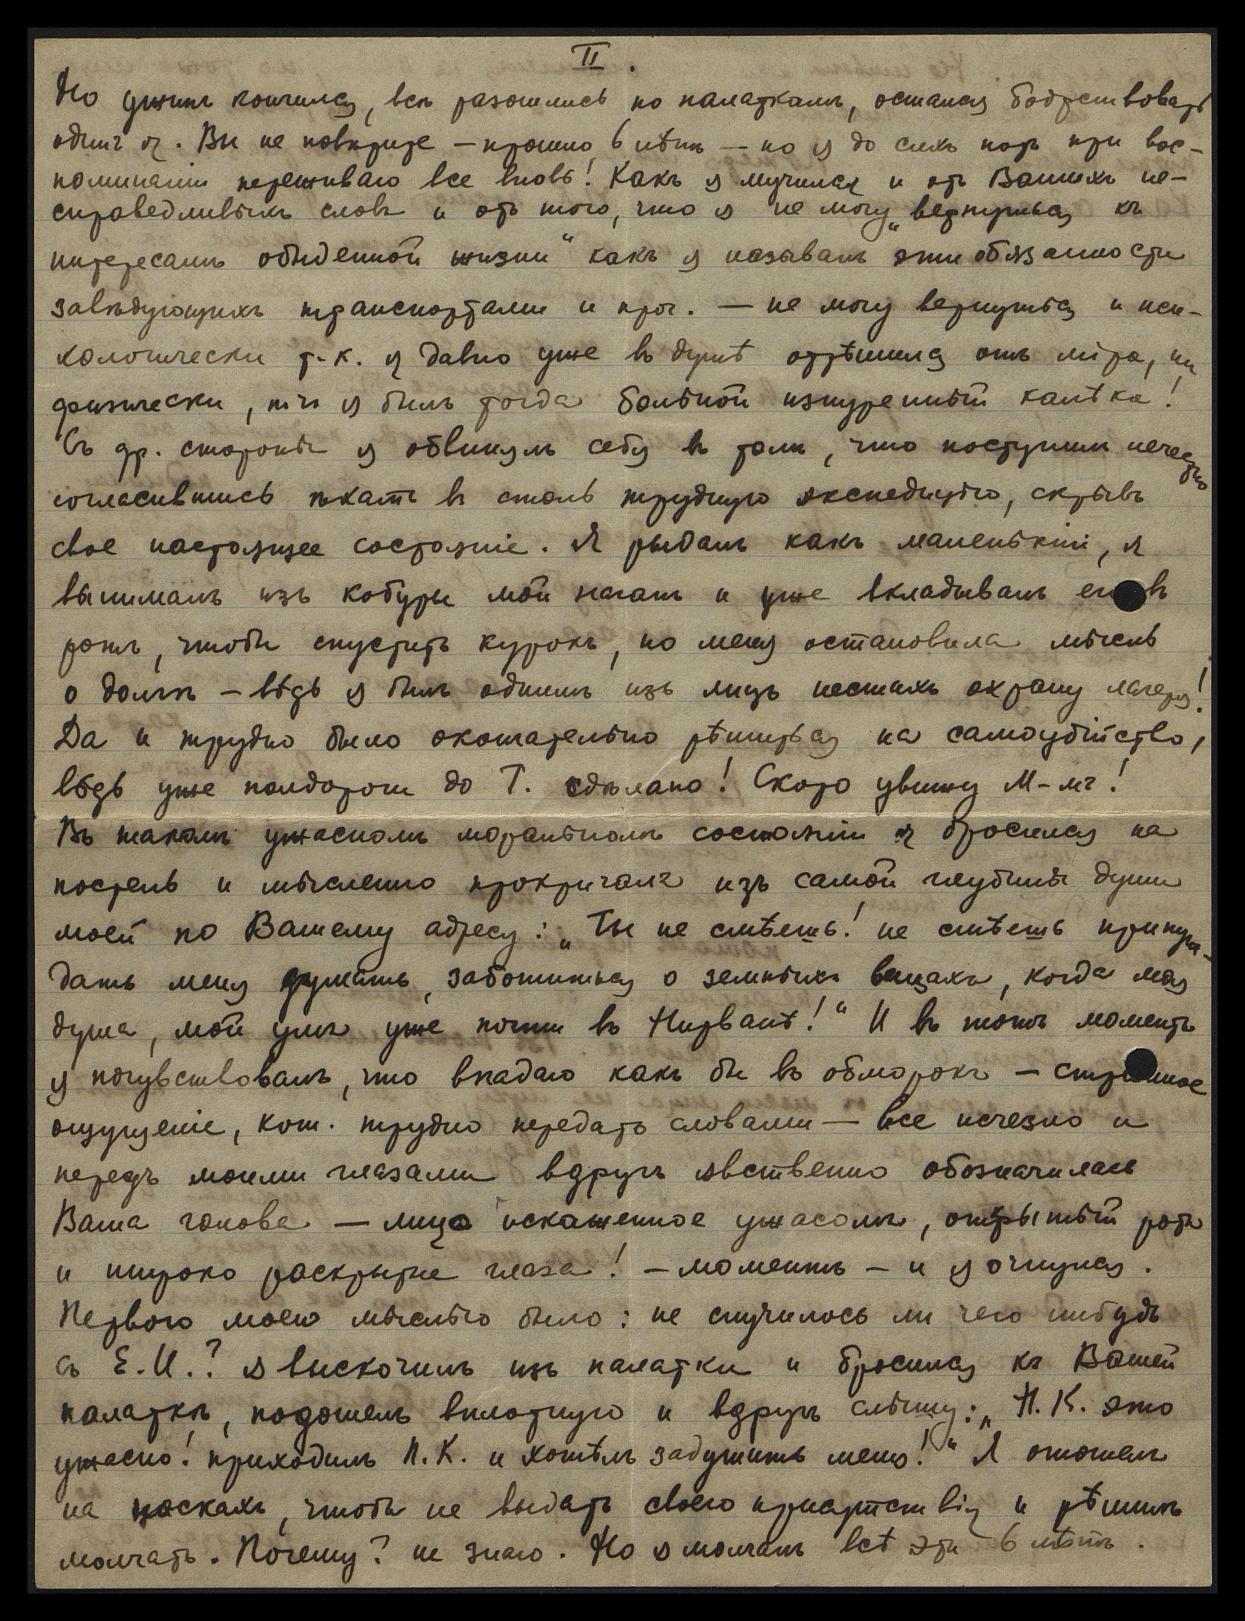 II.
Но ужинъ кончился, всѣ разошлись по палаткамъ, остался бодрствовать
одинъ я. Вы не повѣрите — прошло 6 лѣтъ — но я до сихъ поръ при вос-
поминаніи переживаю все вновь! Какъ я мучился и отъ Вашихъ не-
справедливыхъ словъ и отъ того, что я не могу „вернуться къ
интересамъ обыденной жизни“ какъ я называлъ эти обязанности
завѣдующихъ транспортами и проч. — не могу вернуться и пси-
хологически т.к. я давно уже въ душѣ отрѣшился отъ міра, ни
физически, тч я былъ тогда больной изнуренный калѣка!
Съ др. стороны я обвинялъ себя въ томъ, что поступилъ нечестно
согласившись ѣхать въ столь трудную экспедицію, скрывъ
свое настоящее состояніе. Я рыдалъ какъ маленькій, я
вынималъ изъ кобуры мой наганъ и уже вкладывалъ его въ
ротъ, чтобы спустить курокъ, но меня остановила мысль
о долгѣ — вѣдь я былъ однимъ изъ лицъ несшихъ охрану лагеря!
Да и трудно было окончательно рѣшиться на самоубійство,
вѣдь уже полдороги до Т. сдѣлано! Скоро увижу М-мъ!
Въ такомъ ужасномъ моральномъ состояніи я бросился на
постель и мысленно прокричалъ изъ самой глубины души
моей по Вашему адресу: „Ты не смѣешь! не смѣешь принуж-
дать меня думать, заботиться о земныхъ вещахъ, когда моя
душа, мой умъ уже почти въ Нирванѣ!“ И въ тотъ моментъ
я почувствовалъ, что впадаю какъ бы въ обморокъ — странное
ощущеніе, кот. трудно передать словами — все исчезло и
передъ моими глазами вдругъ явственно обозначилась
Ваша голова — лицо искаженное ужасомъ, открытый ротъ
и широко раскрытые глаза! — моментъ — и я очнулся.
Первою моею мыслью было: не случилось ли чего нибудь
съ Е.И.? Я выскочилъ изъ палатки и бросился къ Вашей
палаткѣ, подошелъ вплотную и вдругъ слышу: „Н.К. это
ужасно! приходилъ П.К. и хотѣлъ задушить меня!“ Я отошелъ
на носкахъ, чтобы не выдать своего присутствія и рѣшилъ
молчать. Почему? не знаю. Но я молчалъ всѣ эти 6 лѣтъ.